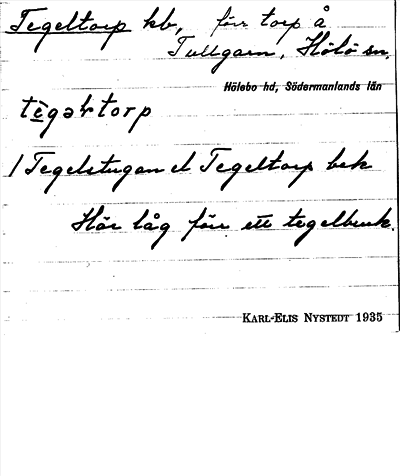 Tegeltorp kb, förr torp å
Tullgarn, Hölö sn.
Hölebo hd, Södermanlands län
tègəltorp
/ Tegelstugan el Tegeltorp bek
Här låg förr ett tegelbruk.
KARL-ELIS NYSTEDT 1935